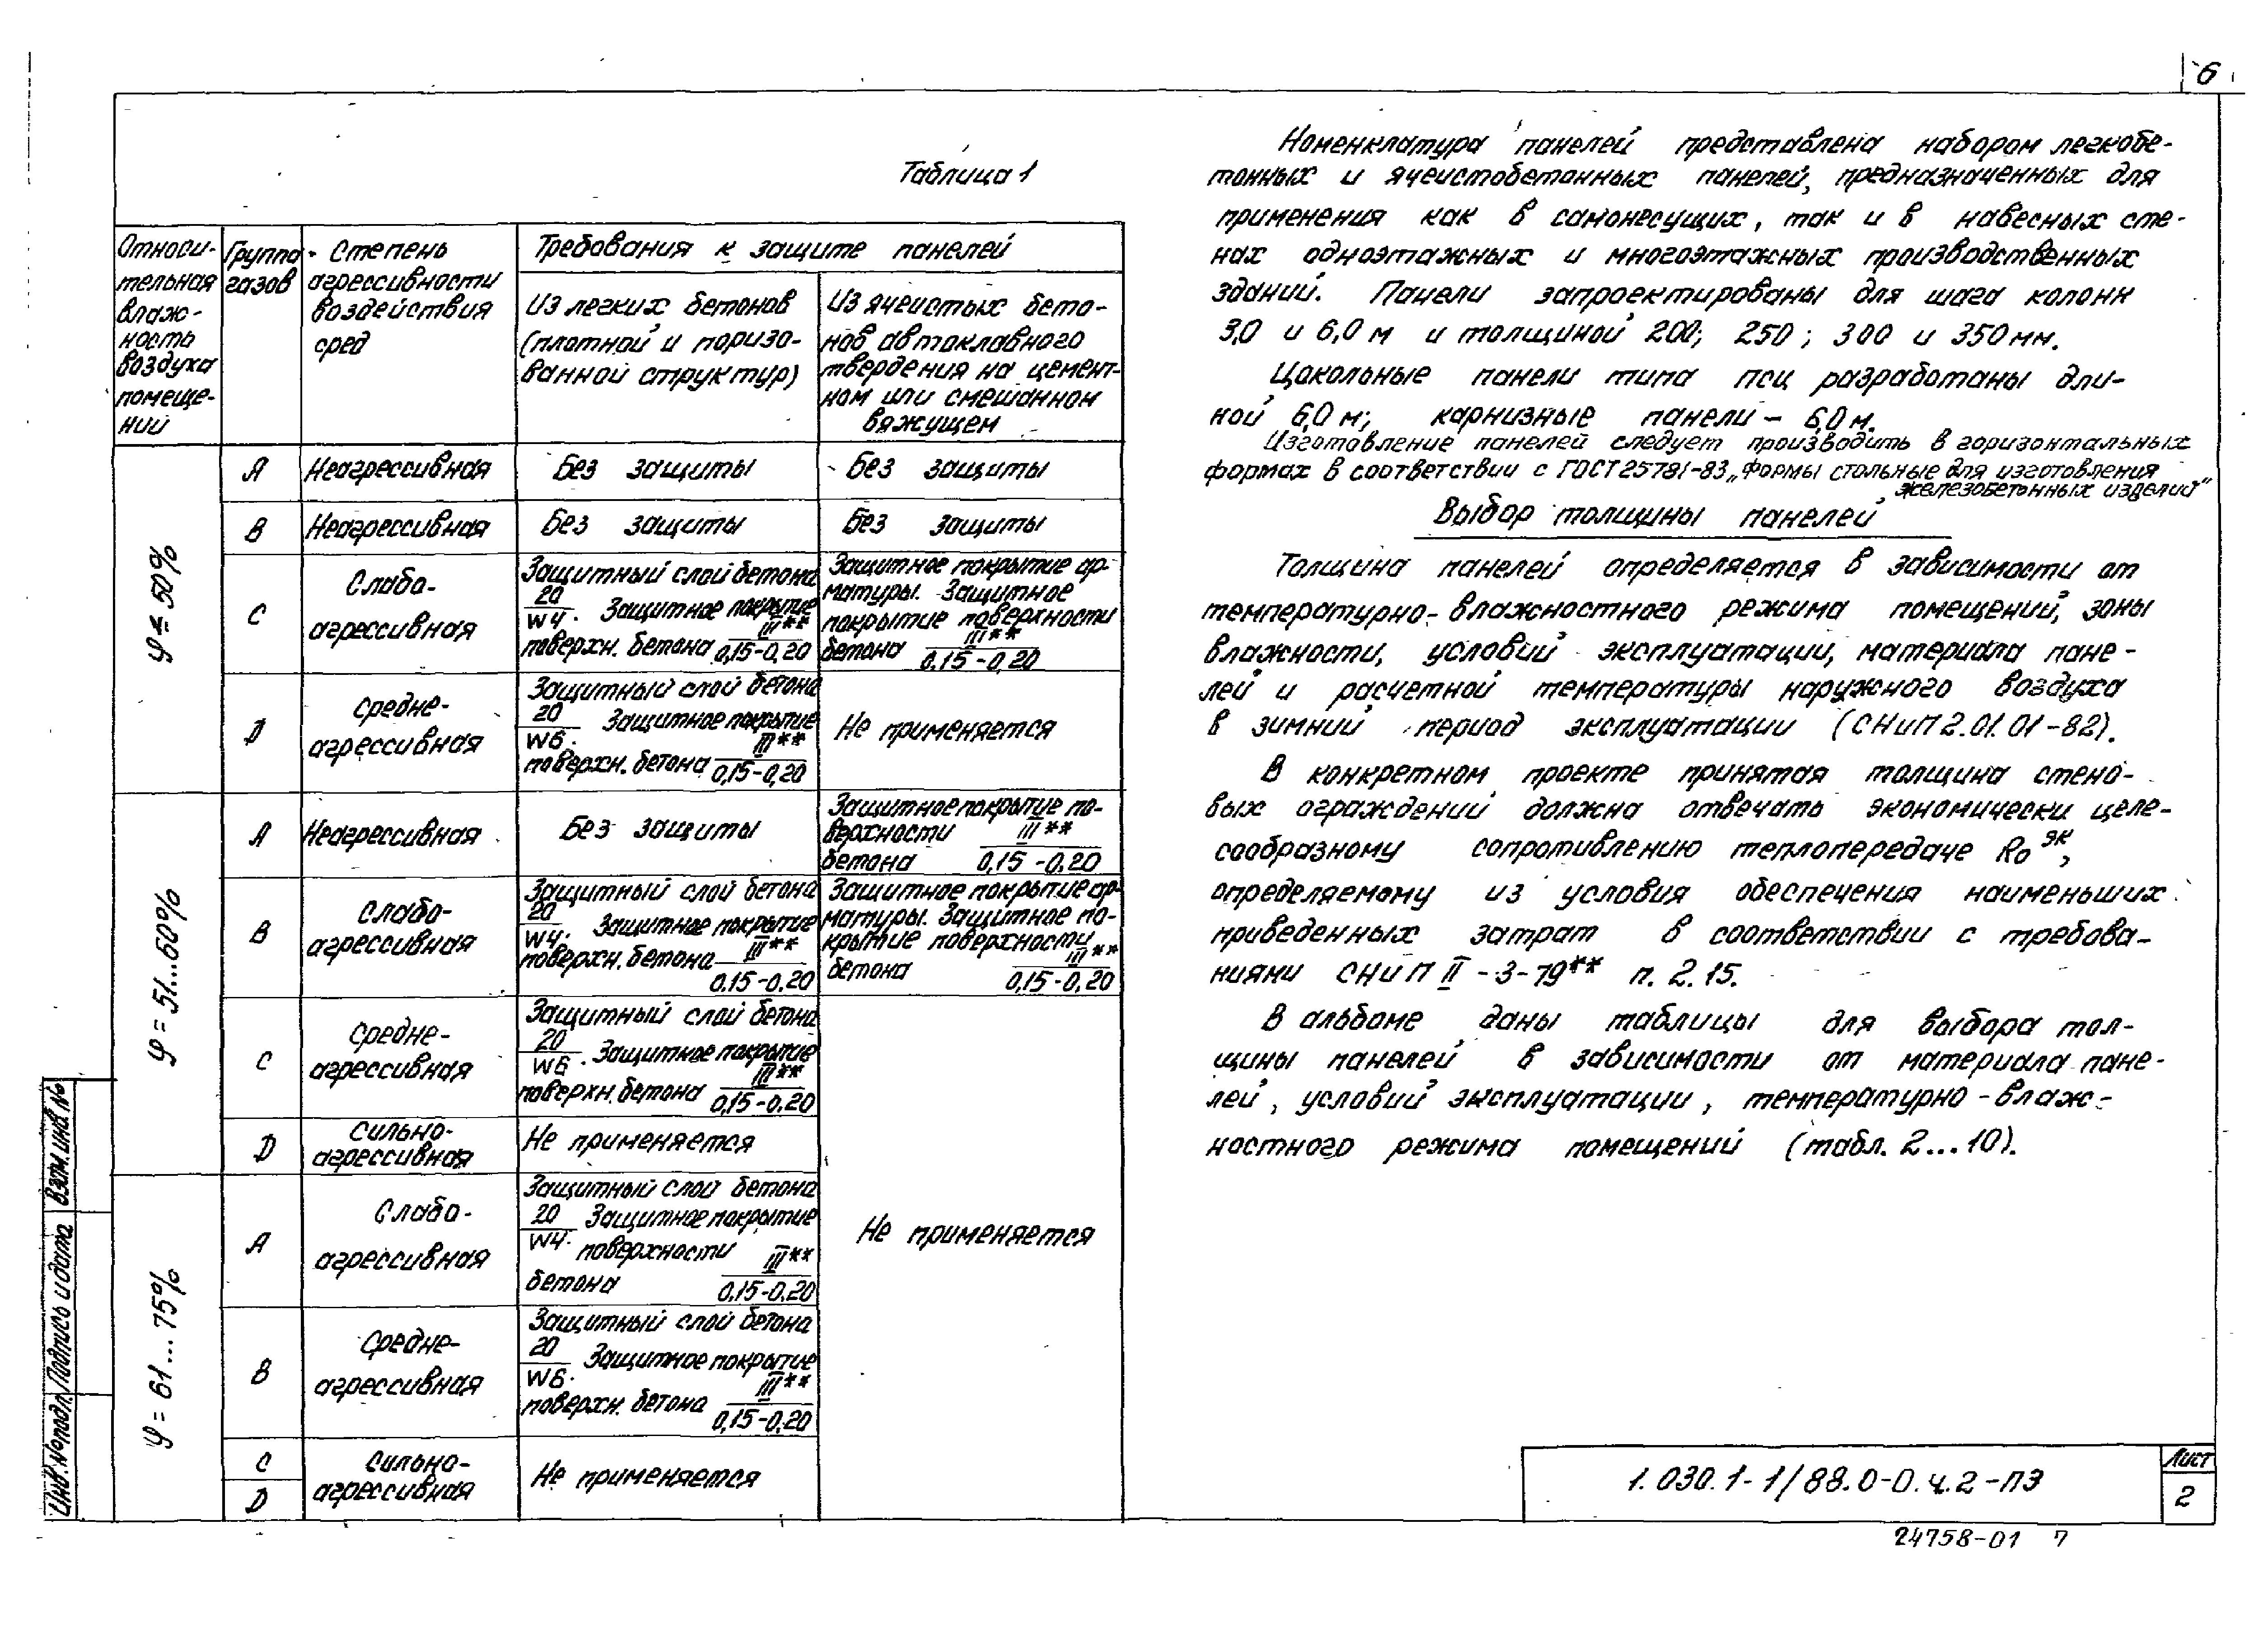 6
Таблица 1
Относи-
тельная
влаж-
ность
воздуха
помеще-
ний
Группа
газов
Степень
агрессивности
воздействия
сред
Требования к защите панелей
Из легких бетонов
(плотной и поризо-
ванной структур)
Из ячеистых бето-
нов автоклавного
твердения на цемент-
ном или смешанном
вяжущем
φ ≤ 50%
А Неагрессивная Без защиты Без защиты
В Неагрессивная Без защиты Без защиты
С
Слабо-
агрессивная
Защитный слой бетона
20
W4. Защитное покрытие
III**
поверхн. бетона 0,15-0,20
Защитное покрытие ар-
матуры. Защитное
покрытие поверхности
III**
бетона 0,15-0,20
D
Средне-
агрессивная
Защитный слой бетона
20
W6. Защитное покрытие
III**
поверхн. бетона 0,15-0,20
Не применяется
φ = 51...60%
А Неагрессивная Без защиты
Защитное покрытие по-
верхности III**
бетона 0,15-0,20
В
Слабо-
агрессивная
Защитный слой бетона
20
W4. Защитное покрытие
поверхн. бетона III**
0,15-0,20
Защитное покрытие ар-
матуры. Защитное по-
крытие поверхности
III**
бетона 0,15-0,20
С
Средне-
агрессивная
Защитный слой бетона
20
W6. Защитное покрытие
III**
поверхн. бетона 0,15-0,20
D
Сильно-
агрессивная
Не применяется
φ = 61...75%
А
Слабо-
агрессивная
Защитный слой бетона
20 Защитное покрытие
W4. поверхности III**
бетона 0,15-0,20
Не применяется
В
Средне-
агрессивная
Защитный слой бетона
20
W6. Защитное покрытие
III**
поверхн. бетона 0,15-0,20
С
D
Сильно-
агрессивная
Не применяется
Номенклатура панелей представлена набором легкобе-
тонных и ячеистобетонных панелей, предназначенных для
применения как в самонесущих, так и в навесных сте-
нах одноэтажных и многоэтажных производственных
зданий. Панели запроектированы для шага колонн
3,0 и 6,0 м и толщиной 200; 250; 300 и 350 мм.
Цокольные панели типа ПСЦ разработаны дли-
ной 6,0 м; карнизные панели - 6,0 м.
Изготовление панелей следует производить в горизонтальных
формах в соответствии с ГОСТ 25781-83 „Формы стальные для изготовления
железобетонных изделий"
Выбор толщины панелей
Толщина панелей определяется в зависимости от
температурно-влажностного режима помещений, зоны
влажности, условий эксплуатации, материала пане-
лей и расчетной температуры наружного воздуха
в зимний период эксплуатации (СНиП 2.01.01-82).
В конкретном проекте принятая толщина стено-
вых ограждений должна отвечать экономически целе-
сообразному сопротивлению теплопередаче Rо эк,
определяемому из условия обеспечения наименьших
приведенных затрат в соответствии с требова-
ниями СНиП II-3-79** п. 2.15.
В альбоме даны таблицы для выбора тол-
щины панелей в зависимости от материала пане-
лей, условий эксплуатации, температурно-влаж-
ностного режима помещений (табл. 2...10).
Инв. № подл. Подпись и дата Взам. инв. №
1.030.1-1/88.0-0.ч.2-ПЗ
Лист
2
24758-01 7